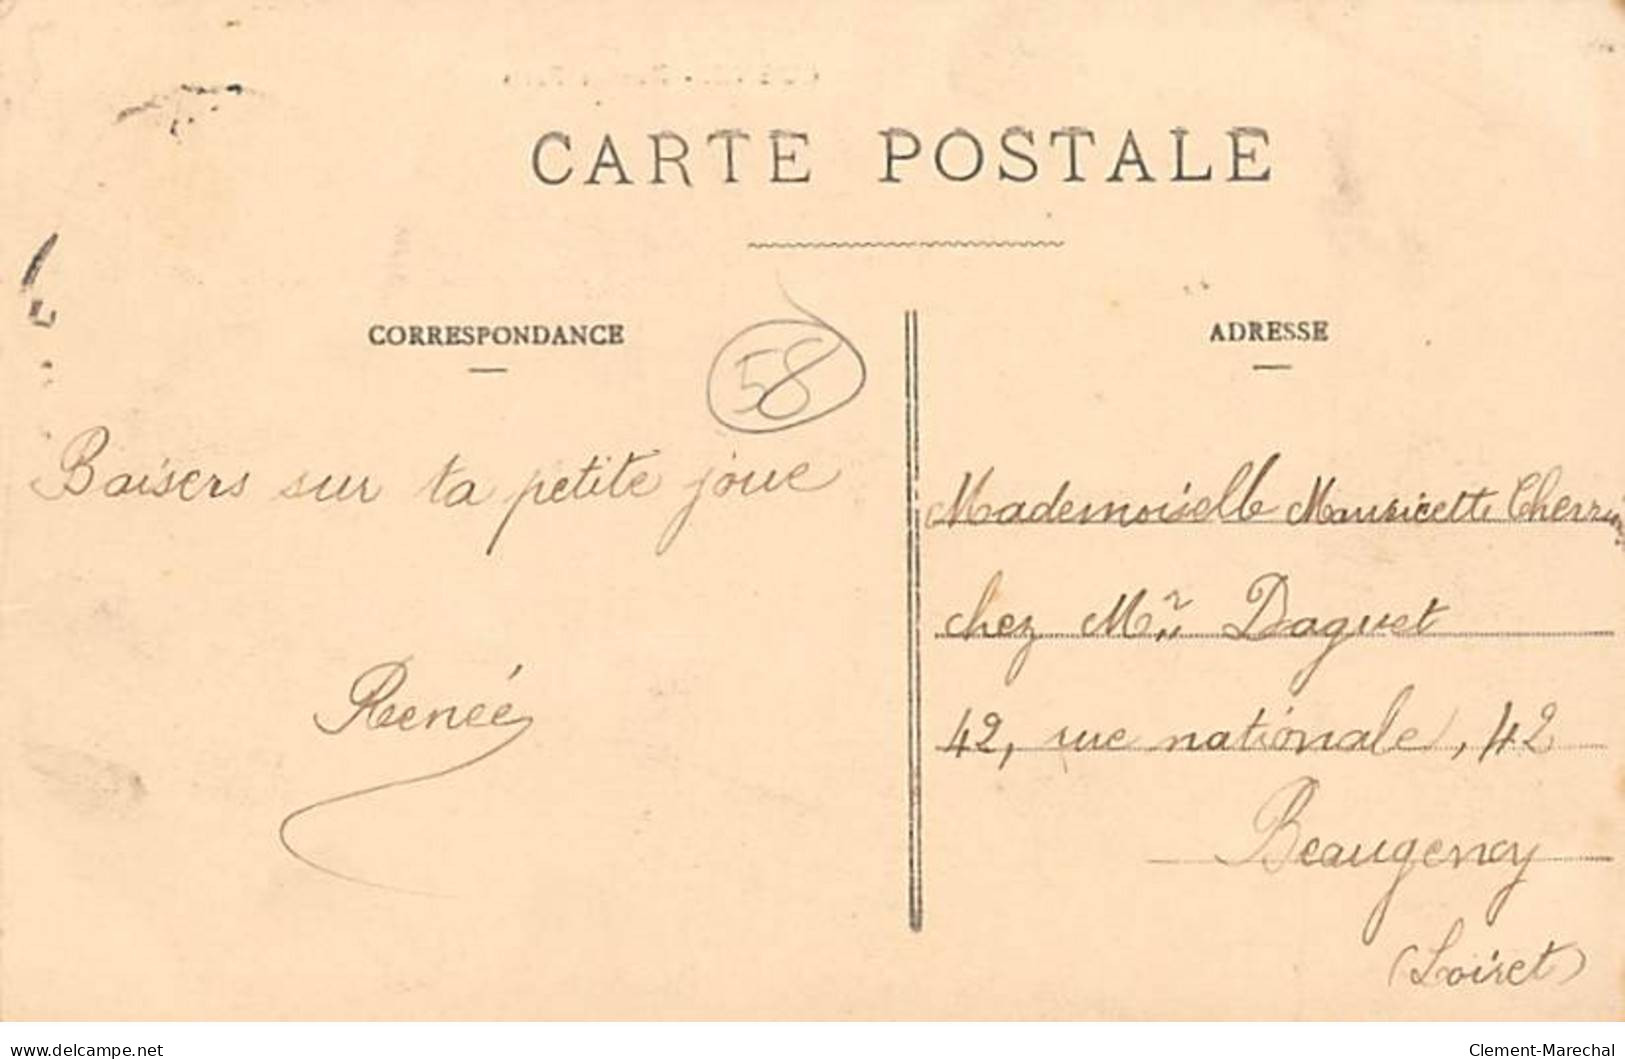 CARTE POSTALE
CORRESPONDANCE
58
Baisers sur ta petite joue
Renée
ADRESSE
Mademoiselle Mauricette
chez Mr Daguet
42, rue nationale, 42
Beaugency
(Loiret)
www.delcampe.net
Clement-Marechal